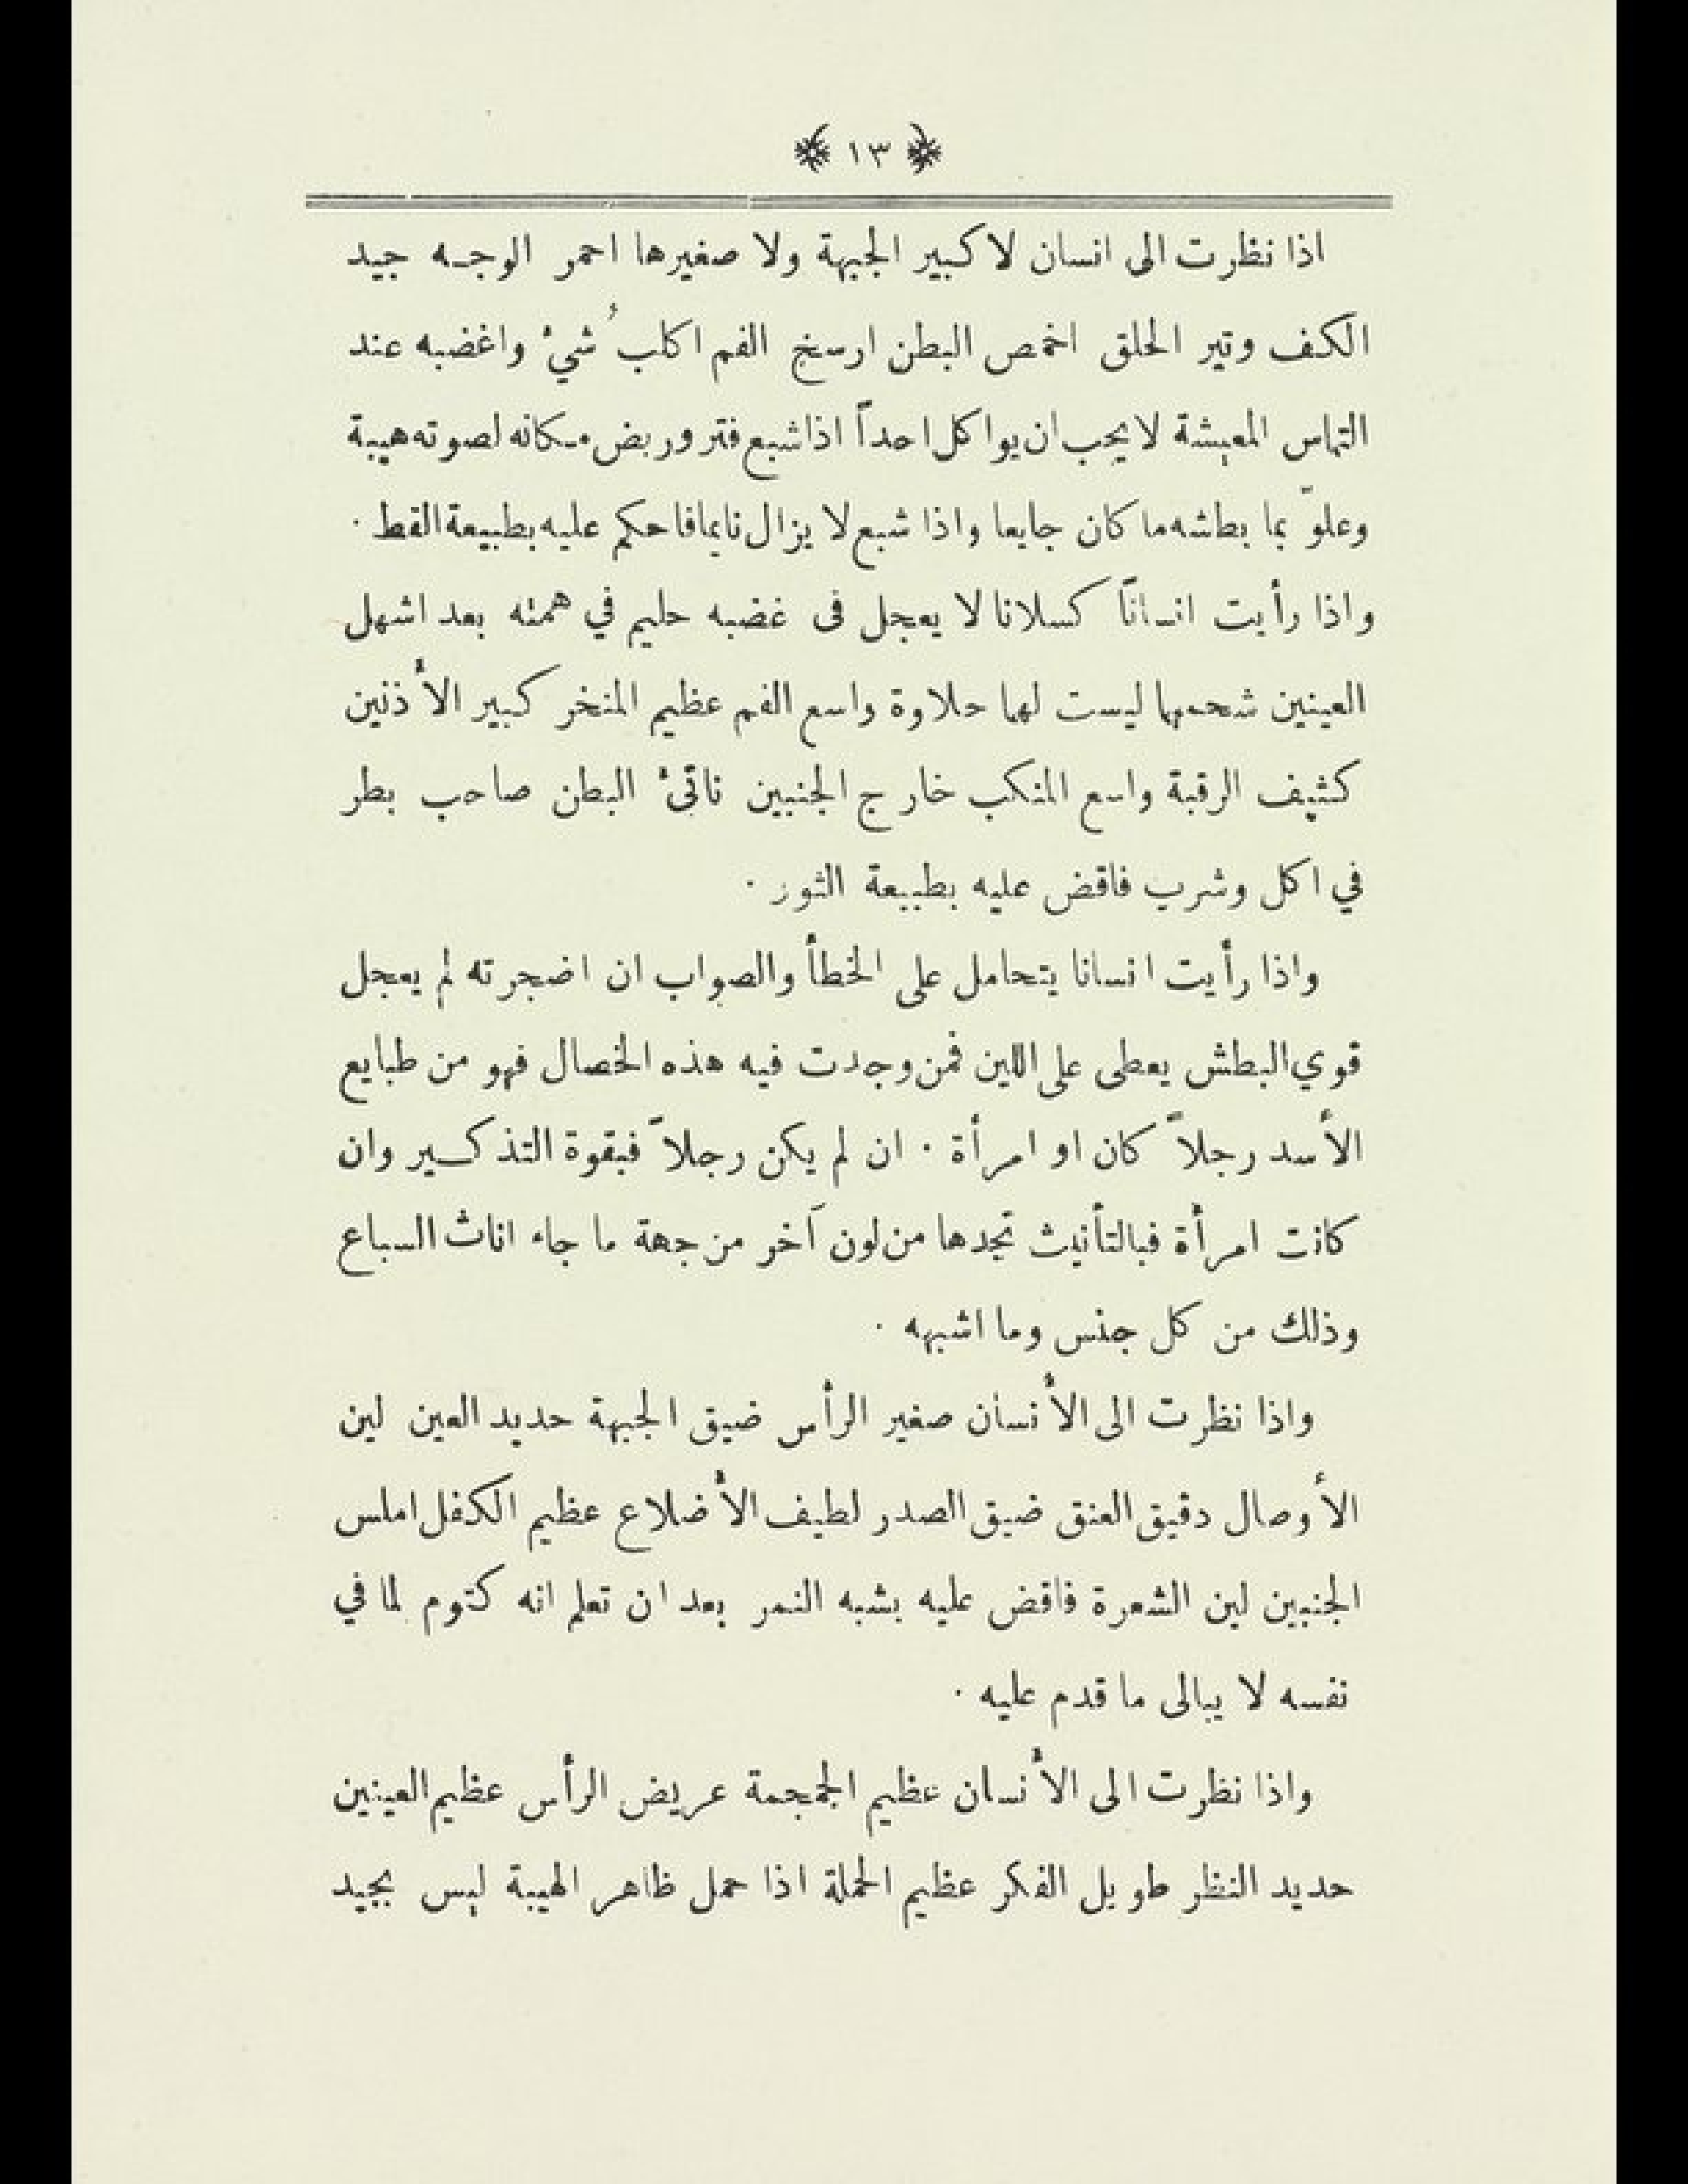 ﴿ ١٣ ﴾
اذا نظرت الى انسان لا كبير الجبهة ولا صغيرها احمر الوجه جيد
الكف وتير الحلق اخمص البطن ارسخ الفم اكلب ُ شيءٔ واغضبه عند
التماس المعيشة لا يحب ان يواكل احداً اذا شبع فتر وربض مكانه لصوته هيبة
وعلوّ بما بطشه ما كان جايعا واذا شبع لا يزال نايما فاحكم عليه بطبيعة القط ٠
واذا رأيت انساناً كسلانا لا يعجل فى غضبه حليم في همته بعد اشهل
العينين شحمهما ليست لهما حلاوة واسع الفم عظيم المنخر كبير الأذنين
كثيف الرقبة واسع المنكب خارج الجنبين ناتئ البطن صاحب بطر
في اكل وشرب فاقض عليه بطبيعة الثور ٠
واذا رأيت انسانا يتحامل على الخطأ والصواب ان اضجرته لم يعجل
قوي البطش يعطى على اللين فمن وجدت فيه هذه الخصال فهو من طبايع
الأسد رجلاً كان او امرأة ٠ ان لم يكن رجلاً فبقوة التذكير وان
كانت امرأة فبالتأنيث تجدها من لون آخر من جهة ما جاء اناث السباع
وذلك من كل جنس وما اشبهه ٠
واذا نظرت الى الأنسان صغير الرأس ضيق الجبهة حديد العين لين
الأوصال دقيق العنق ضيق الصدر لطيف الأضلاع عظيم الكفل املس
الجنبين لين الشعرة فاقض عليه بشبه النمر بعد ان تعلم انه كتوم لما في
نفسه لا يبالى ما قدم عليه ٠
واذا نظرت الى الأنسان عظيم الجمجمة عريض الرأس عظيم العينين
حديد النظر طويل الفكر عظيم الحملة اذا حمل ظاهر الهيبة ليس بجيد